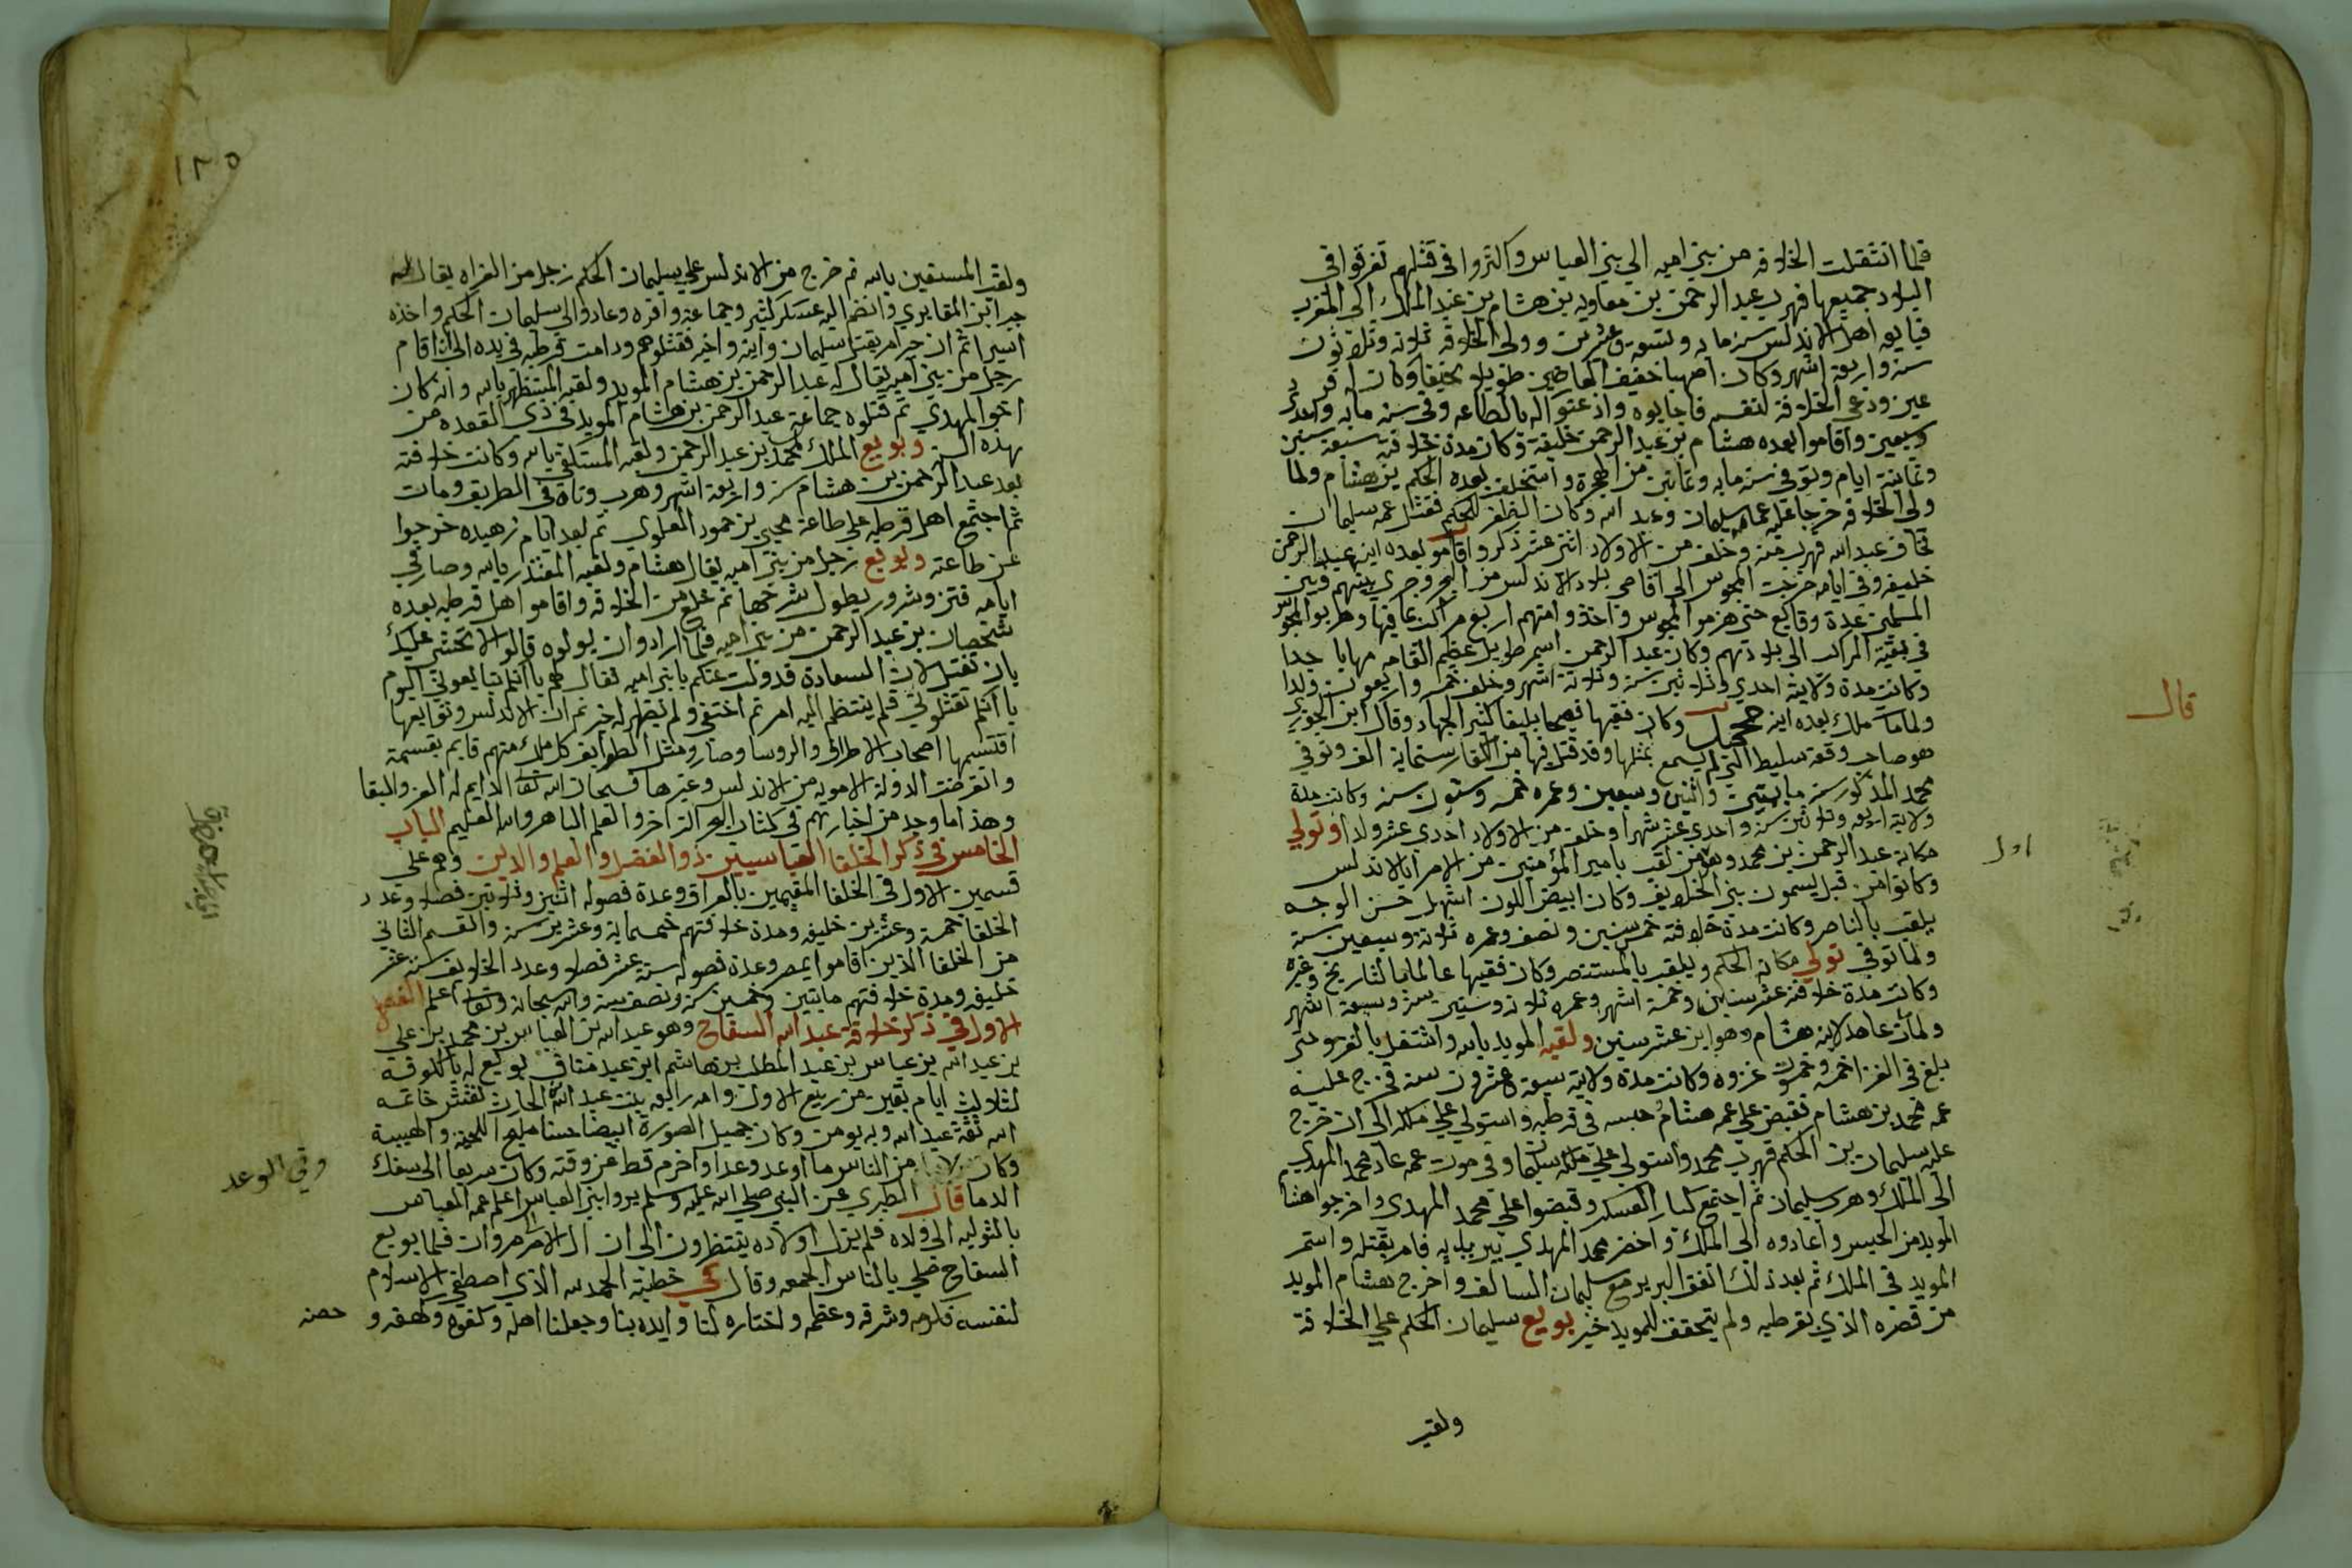 فلما انتقلت الخلافه من بني اميه الي بني العباس واكثروا في قتلهم تفرقوا في
البلاد جميعها فهرب عبد الرحمن بن معاويه بن هشام بن عبد الملك الي المغرب
فبايعه اهل الاندلس سنة مايه وتسعه وعشرين وولي الخلافه ثلاثه وثلاثون
سنه واربعة اشهر وكان اصهبا خفيف العارضين طويلا نحيفا وكان له فرد
عين ودعي الخلافة لنفسه فاجابوه واذعنوا له بالطاعه وفي سنه مايه واحدي
وسبعين واقاموا بعده هشام بن عبد الرحمن خليفة وكان مدة خلافته سبعة سنين
وثمانية ايام وتوفي سنه مايه وثمانين من الهجرة واستخلف بعده الحكم بن هشام ولما
ولي الخلافه خرجا عليه عماه سليمان وعبد الله وكان الظفر للحكم فقتل عمه سليمان
فخاف عبد الله فهرب منه وخلف من الاولاد اثني عشر ذكر واقاموا بعده ابنه عبد الرحمن
خليفه وفي ايامه خرجت المجوس الي اقاصي بلاد الاندلس من البحر وجري بينهم وبين
المسلمين عدة وقايع حتي هزموا المجوس واخذوا منهم اربع مراكب بما فيها وهربوا المجوس
في بقية المراكب الي بلادهم وكان عبد الرحمن اسمر طويل عظيم القامه مهابا جدا
وكانت مدة ولايته احدي وثلاثين سنه وثلاثة اشهر وخلف خمسه واربعون ولدا
ولما مات ملك بعده ابنه محمد وكان فقيها فصيحا بليغا كثير الجهاد وقال ابن الجوزي
هو صاحب وقعة سليط التي لم يسمع بمثلها وقد قتل فيها من الكفار ستماية الف وتوفي
محمد المذكور سنه مايتين واثنين وسبعين وعمره خمسه وستون سنه وكانت مدة
ولايته اربعه وثلاثين سنه واحدي عشر شهرا وخلف من الاولاد احدي عشر ولدا وتولي
مكانه عبد الرحمن بن محمد وهو من لقب بامير المؤمنين من الامرا بالاندلس
وكانوا من قبل يسمون بني الخلايف وكان ابيض اللون اشهل حسن الوجه
يلقب بالناصر وكانت مدة خلافته خمس سنين ونصف وعمره ثلاثة وسبعين سنه
ولما توفي تولي مكانه الحكم ويلقب بالمستنصر وكان فقيها عالما بالتاريخ وغيره
وكانت مدة خلافته عشر سنين وخمسة اشهر وعمره ثلاثه وستين سنة وسبعة اشهر
ولما مات عاهد لابنه هشام وهو ابن عشر سنين ولقبه المويد بالله واشتغل بالغزو حتي
بلغ في الغزا خمسه وخمسون غزوه وكانت مدة ولايته سبعة وعشرون سنه فخرج عليه
عمه محمد بن هشام فقبض علي عمه هشام وحبسه في قرطبه واستولي علي ملكه الي ان خرج
عليه سليمان بن الحكم فهرب محمد واستولي علي ملكه سليمان وفي موت عمه عاد محمد المهدي
الي الملك وهرب سليمان ثم اجتمع كبار العسكر وقبضوا علي محمد المهدي واخرجوا هشام
المويد من الحبس واعادوه الي الملك واحضر محمد المهدي بين يديه فامر بقتله واستمر
المويد في الملك ثم بعد ذلك اتفق البربر مع سليمان السالف واخرج هشام المويد
من قصره الذي بقرطبه ولم يتحقق للمويد خبر بويع سليمان الحكم علي الخلافة
ولقبه
قال
اول
١٢٥
ولقب المستعين بالله ثم خرج من الاندلس علي سليمان الحكم رجل من الغزاه يقال له
وانضم اليه عسكر كثير وجماعة وافره وعادوا الي سليمان الحكم واخذه
اسيرا ثم ان امر بقتل سليمان وابنه واخيه فقتلوهم ودامت قرطبه في يده الي ان اقام
رجل من بني اميه يقال له عبد الرحمن بن هشام المويد ولقبه المستظهر بالله وانه كان
اخو المهدي ثم قتلوه جماعة عبد الرحمن بن هشام المويد في ذي القعده من
هذه السنة وبويع الملك محمد بن عبد الرحمن ولقبه المستكفي بالله وكانت خلافته
بعد عبد الرحمن بن هشام سنه واربعة اشهر وهرب وتاه في الطريق ومات
ثم اجتمع اهل قرطبه علي طاعة يحيي بن حمود العلوي ثم بعد ايام زهيده خرجوا
عن طاعته وبويع رجل من بني اميه يقال هشام ولقبه المقتدر بالله وصار في
ايامه فتن وشرور يطول شرحها ثم خلع من الخلافه واقاموا اهل قرطبه بعده
شخصا بن عبد الرحمن من بني اميه فلما ارادوا ان يولوه قالوا له الا تخشي عليك
بان تقتل لان السعادة قد ولت عنكم يا بني اميه فقال لهم يا انكم تبايعوني اليوم
يا انكم تقتلوني فلم ينتظم اليه امر ثم اختفي ولم يظهر له خبر ثم ان الاندلس وتوابعها
اقتسمها اصحاب الاطراف والروسا وصار ومثل الطوايف كل ملك منهم قايم بقسمة
وانقرضت الدولة الامويه من الاندلس وغيرها فسبحان الله تعالي الدايم له العز والبقا
وهذا ما وجد من اخبارهم في كتاب البحر الزاخر والعلم الباهر والله العليم الباب
الخامس في ذكر الخلفا العباسيين ذو الفضل والعلم والدين وهم علي
قسمين الاول في الخلفا المقيمين بالعراق وعدة فصوله اثنين وثلاثين فصلا وعدد
الخلفا خمسة وعشرين خليفه ومدة خلافتهم خمسماية وعشرين سنه والقسم الثاني
من الخلفا الذين اقاموا بمصر وعدة فصوله ستة عشر فصلا وعدد الخلايف ستة عشر
خليفه ومدة خلافتهم مايتين وخمسين سنه ونصف سنه والله سبحانه وتعالي اعلم الفصل
الاول في ذكر خلافة عبد الله السفاح وهو عبد الله بن العباس بن محمد بن علي
بن عبد الله بن عباس بن عبد المطلب بن هاشم ابن عبد مناف بويع له بالكوفه
لثلاث ايام بقين من ربيع الاول وامه رايعه بنت عبد الله الحارث نقش خاتمه
الله ثقة عبد الله وبه يومن وكان جميل الصورة ابيضا حسنا مليح اللحيه والهيبة
وكان من الناس ما اوعد وعدا واخرم قط عن وقته وكان سريعا الي سفك
الدما قال الطبري عن النبي صلي الله عليه وسلم يروا بني العباس اعلم عمه العباس
بالتوليه الي ولاده فلم يزل اولاده ينتظرون الي ان ال الامر مروان فلما بويع
السفاح صلي بالناس الجمعه وقال في خطبته الحمد لله الذي اصطفي الاسلام
لنفسه فكرمه وشرفه وعظمه واختاره لنا وايده بنا وجعلنا اهله وكهفه و
حصنه
وفي الوعد